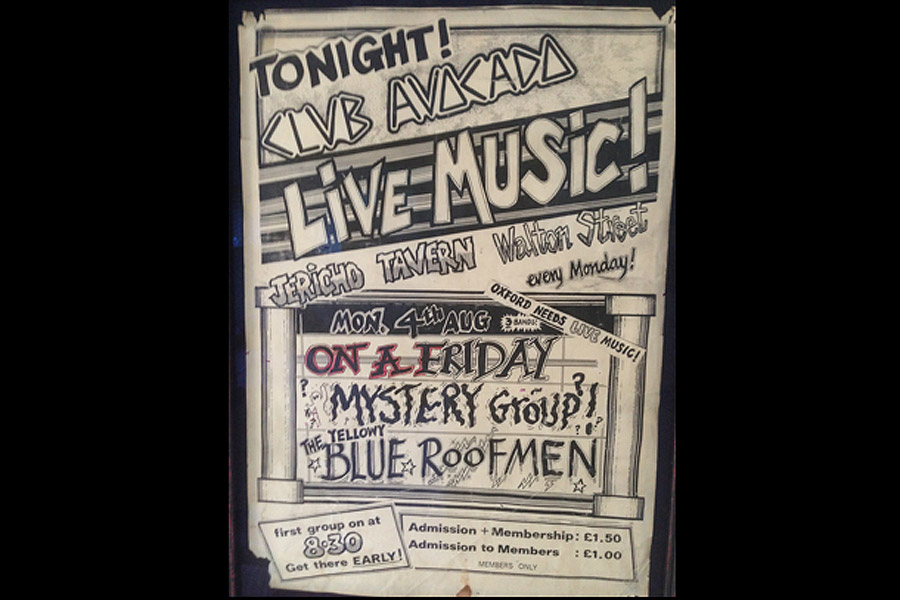 TONIGHT!
CLUB AVOCADO
LiVE MUSiC!
JERICHO TAVERN Walton Street
every Monday!
OXFORD NEEDS LIVE MUSIC!
MON. 4th AUG 3 BANDS!
ON A FRIDAY
? MYSTERY GROUP! ?
THE YELLOWY
BLUE ROOFMEN
first group on at
8:30
Get there EARLY!
Admission + Membership : £1.50
Admission to Members : £1.00
MEMBERS ONLY